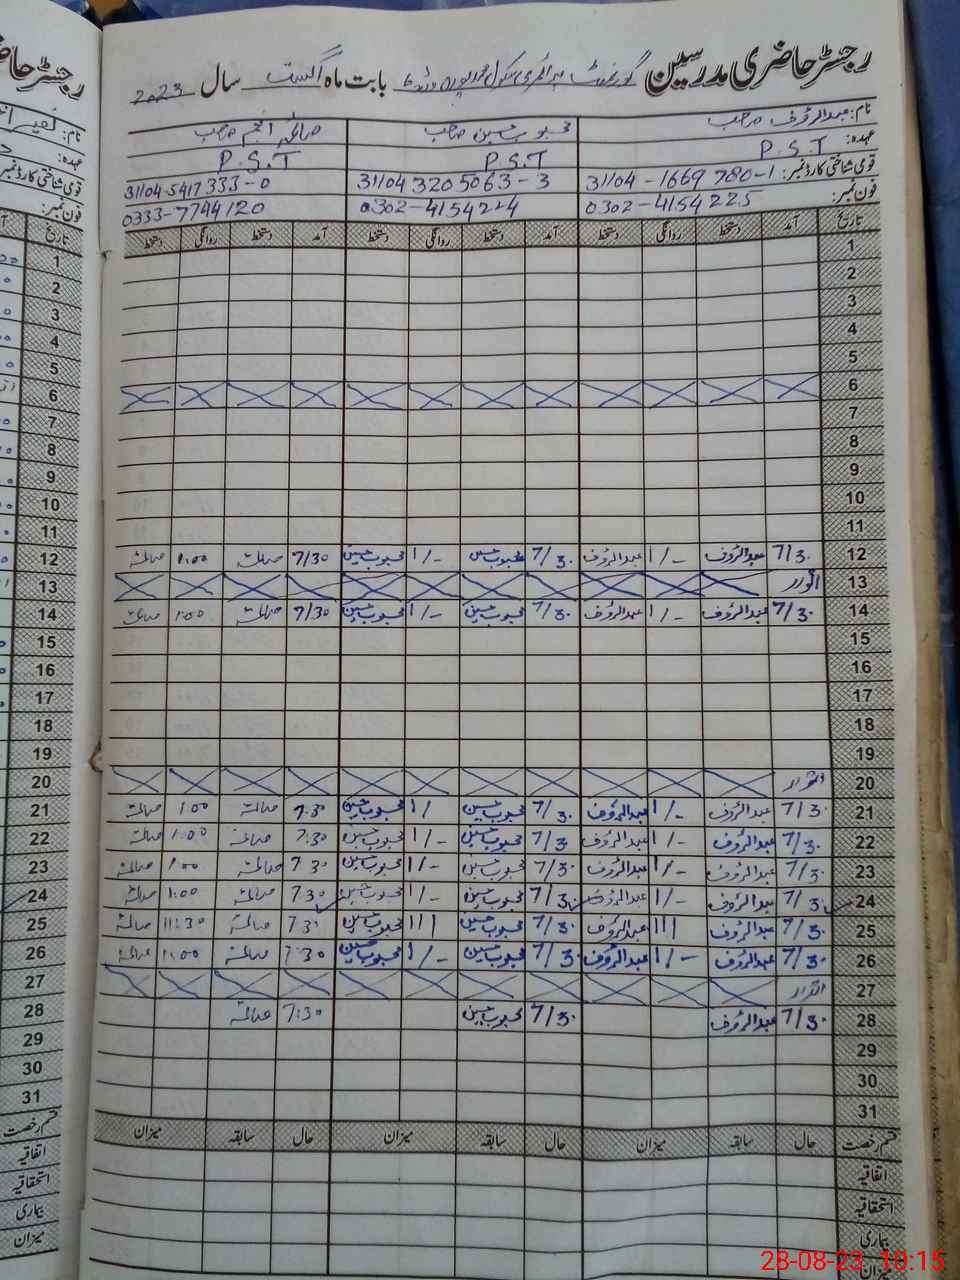 رجسٹر حاضری مدرسین گورنمنٹ پرائمری سکول بابت ماہ اگست سال 2023
نام: عبدالرؤف صاحب محبوب حسین صاحب صاحب
عہدہ: P.S.T P.S.T P.S.T
قومی شناختی کارڈ نمبر: 31104-1669780-1 31104 3205063-3 31104-5417333-0
فون نمبر: 0302-4154225 0302-4154224 0333-7744120
تاریخ آمد دستخط روانگی دستخط آمد دستخط روانگی دستخط آمد دستخط روانگی دستخط
1
2
3
4
5
6
7
8
9
10
11
12 7/30 عبدالرؤف 1/- عبدالرؤف 7/30 محبوب حسین 1/- محبوب حسین 7/30 صالحہ 1:00 صالحہ
13 اتوار
14 7/30 عبدالرؤف 1/- عبدالرؤف 7/30 محبوب حسین 1/- محبوب حسین 7/30 صالحہ 1:00 صالحہ
15
16
17
18
19
20 اتوار
21 7/30 عبدالرؤف 1/- عبدالرؤف 7/30 محبوب حسین 1/ محبوب حسین 7:30 صالحہ 1:00 صالحہ
22 7/30 عبدالرؤف 1/- عبدالرؤف 7/30 محبوب حسین 1/- محبوب حسین 7:30 صالحہ 1:00 صالحہ
23 7/30 عبدالرؤف 1/- عبدالرؤف 7/30 محبوب حسین 1/- محبوب حسین 7:30 صالحہ 1:00 صالحہ
24 7/30 عبدالرؤف 1/- عبدالرؤف 7/30 محبوب حسین 1/- محبوب حسین 7:30 صالحہ 1:00 صالحہ
25 7/30 عبدالرؤف عبدالرؤف 7/30 محبوب حسین محبوب حسین 7:30 صالحہ 11:30 صالحہ
26 7/30 عبدالرؤف 1/- عبدالرؤف 7/30 محبوب حسین 1/- محبوب حسین 7:30 صالحہ 1:00 صالحہ
27 اتوار
28 7/30 عبدالرؤف 7/30 محبوب حسین 7:30 صالحہ
29
30
31
قسم رخصت حال سابقہ میزان حال سابقہ میزان حال سابقہ میزان
اتفاقیہ
استحقاقیہ
بیماری
میزان
28-08-23 10:15